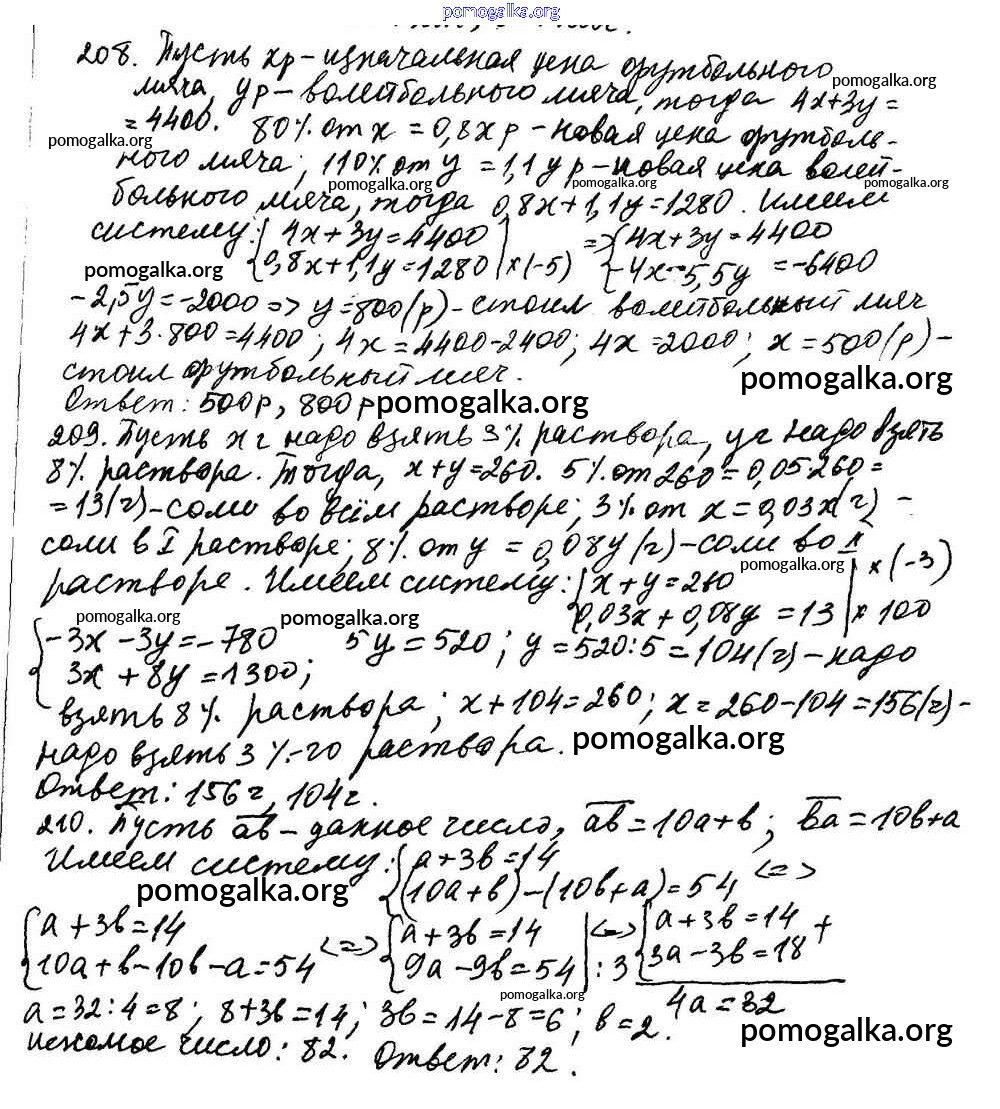 pomogalka.org
208. Пусть xр – изначальная цена футбольного
мяча, yр – волейбольного мяча, тогда 4x+3y=
pomogalka.org
=4400. 80% от x = 0,8x р – новая цена футболь-
pomogalka.org pomogalka.org
ного мяча; 110% от y = 1,1y р – новая цена волей-
pomogalka.org pomogalka.org
больного мяча, тогда 0,8x+1,1y=1280. Имеем
систему: { 4x+3y=4400 | => { 4x+3y=4400
0,8x+1,1y=1280 | ×(-5) -4x-5,5y=-6400
pomogalka.org
-2,5y=-2000 => y=800(р) – стоил волейбольный мяч
4x+3·800=4400; 4x=4400-2400; 4x=2000; x=500(р) –
стоил футбольный мяч.
pomogalka.org
Ответ: 500р, 800р
pomogalka.org
209. Пусть x г надо взять 3% раствора, y г надо взять
8% раствора. Тогда, x+y=260. 5% от 260=0,05·260=
=13(г) – соли во всём растворе; 3% от x=0,03x(г) –
соли в I растворе; 8% от y = 0,08y (г) – соли во II
pomogalka.org
растворе. Имеем систему: { x+y=260 | ×(-3)
0,03x+0,08y=13 | ×100
pomogalka.org pomogalka.org
{ -3x-3y=-780 5y=520; y=520:5=104(г) – надо
3x+8y=1300;
взять 8% раствора; x+104=260; x=260-104=156(г) –
надо взять 3%-го раствора.
pomogalka.org
Ответ: 156г, 104г.
210. Пусть ab – данное число, ab=10a+b; ba=10b+a
Имеем систему: { a+3b=14
(10a+b)-(10b+a)=54 <=>
pomogalka.org
{ a+3b=14 <=> { a+3b=14 | <=> { a+3b=14 +
10a+b-10b-a=54 9a-9b=54 | :3 3a-3b=18
4a=32
a=32:4=8; 8+3b=14; 3b=14-8=6; b=2.
pomogalka.org
искомое число: 82. Ответ: 82.
pomogalka.org